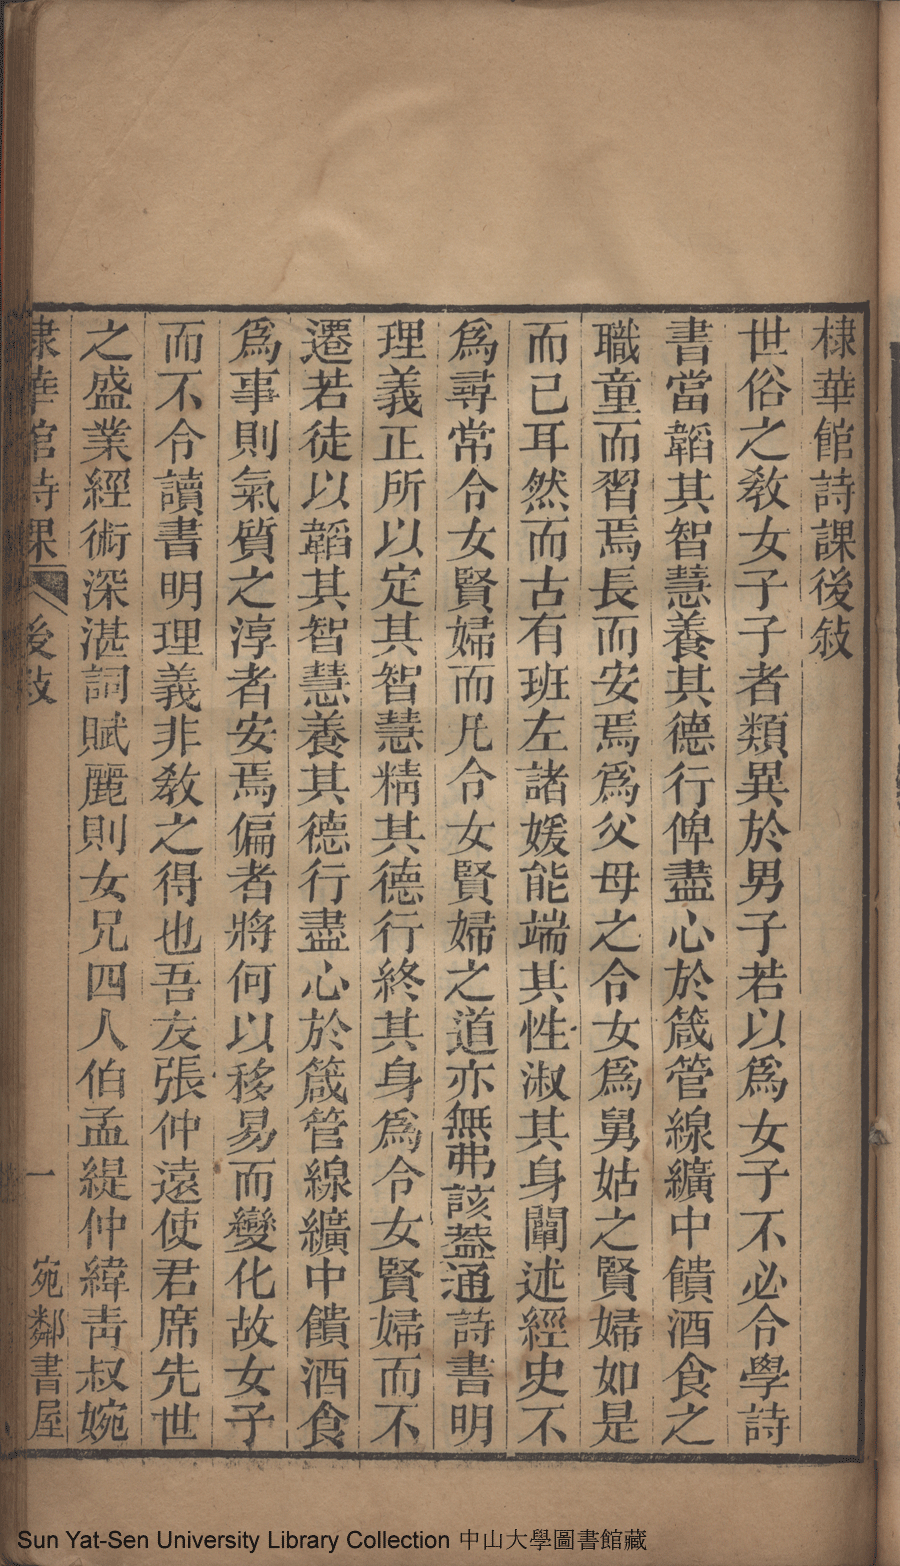 棣華館詩課後敍
世俗之敎女子子者類異於男子若以爲女子不必令學詩
書當韜其智慧養其德行俾盡心於箴管線纊中饋酒食之
職童而習焉長而安焉爲父母之令女爲舅姑之賢婦如是
而已耳然而古有班左諸媛能端其性淑其身闡述經史不
爲尋常令女賢婦而凡令女賢婦之道亦無弗該葢通詩書明
理義正所以定其智慧精其德行終其身爲令女賢婦而不
遷若徒以韜其智慧養其德行盡心於箴管線纊中饋酒食
爲事則氣質之淳者安焉偏者將何以移易而變化故女子
而不令讀書明理義非敎之得也吾友張仲遠使君席先世
之盛業經術深湛詞賦麗則女兄四人伯孟緹仲緯靑叔婉
棣華館詩課 後敍 一 宛鄰書屋
Sun Yat-Sen University Library Collection 中山大學圖書館藏